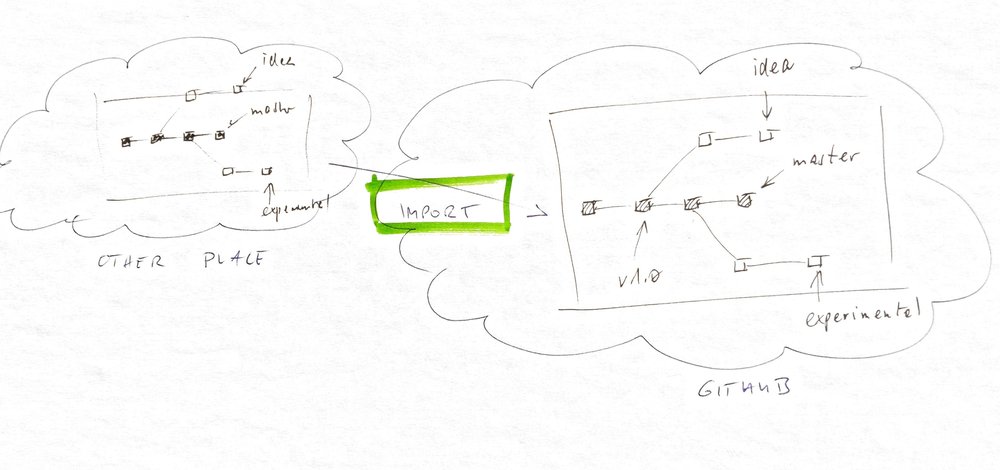 idea
master
experimental
OTHER PLACE
IMPORT
idea
master
v1.0
experimental
GITHUB